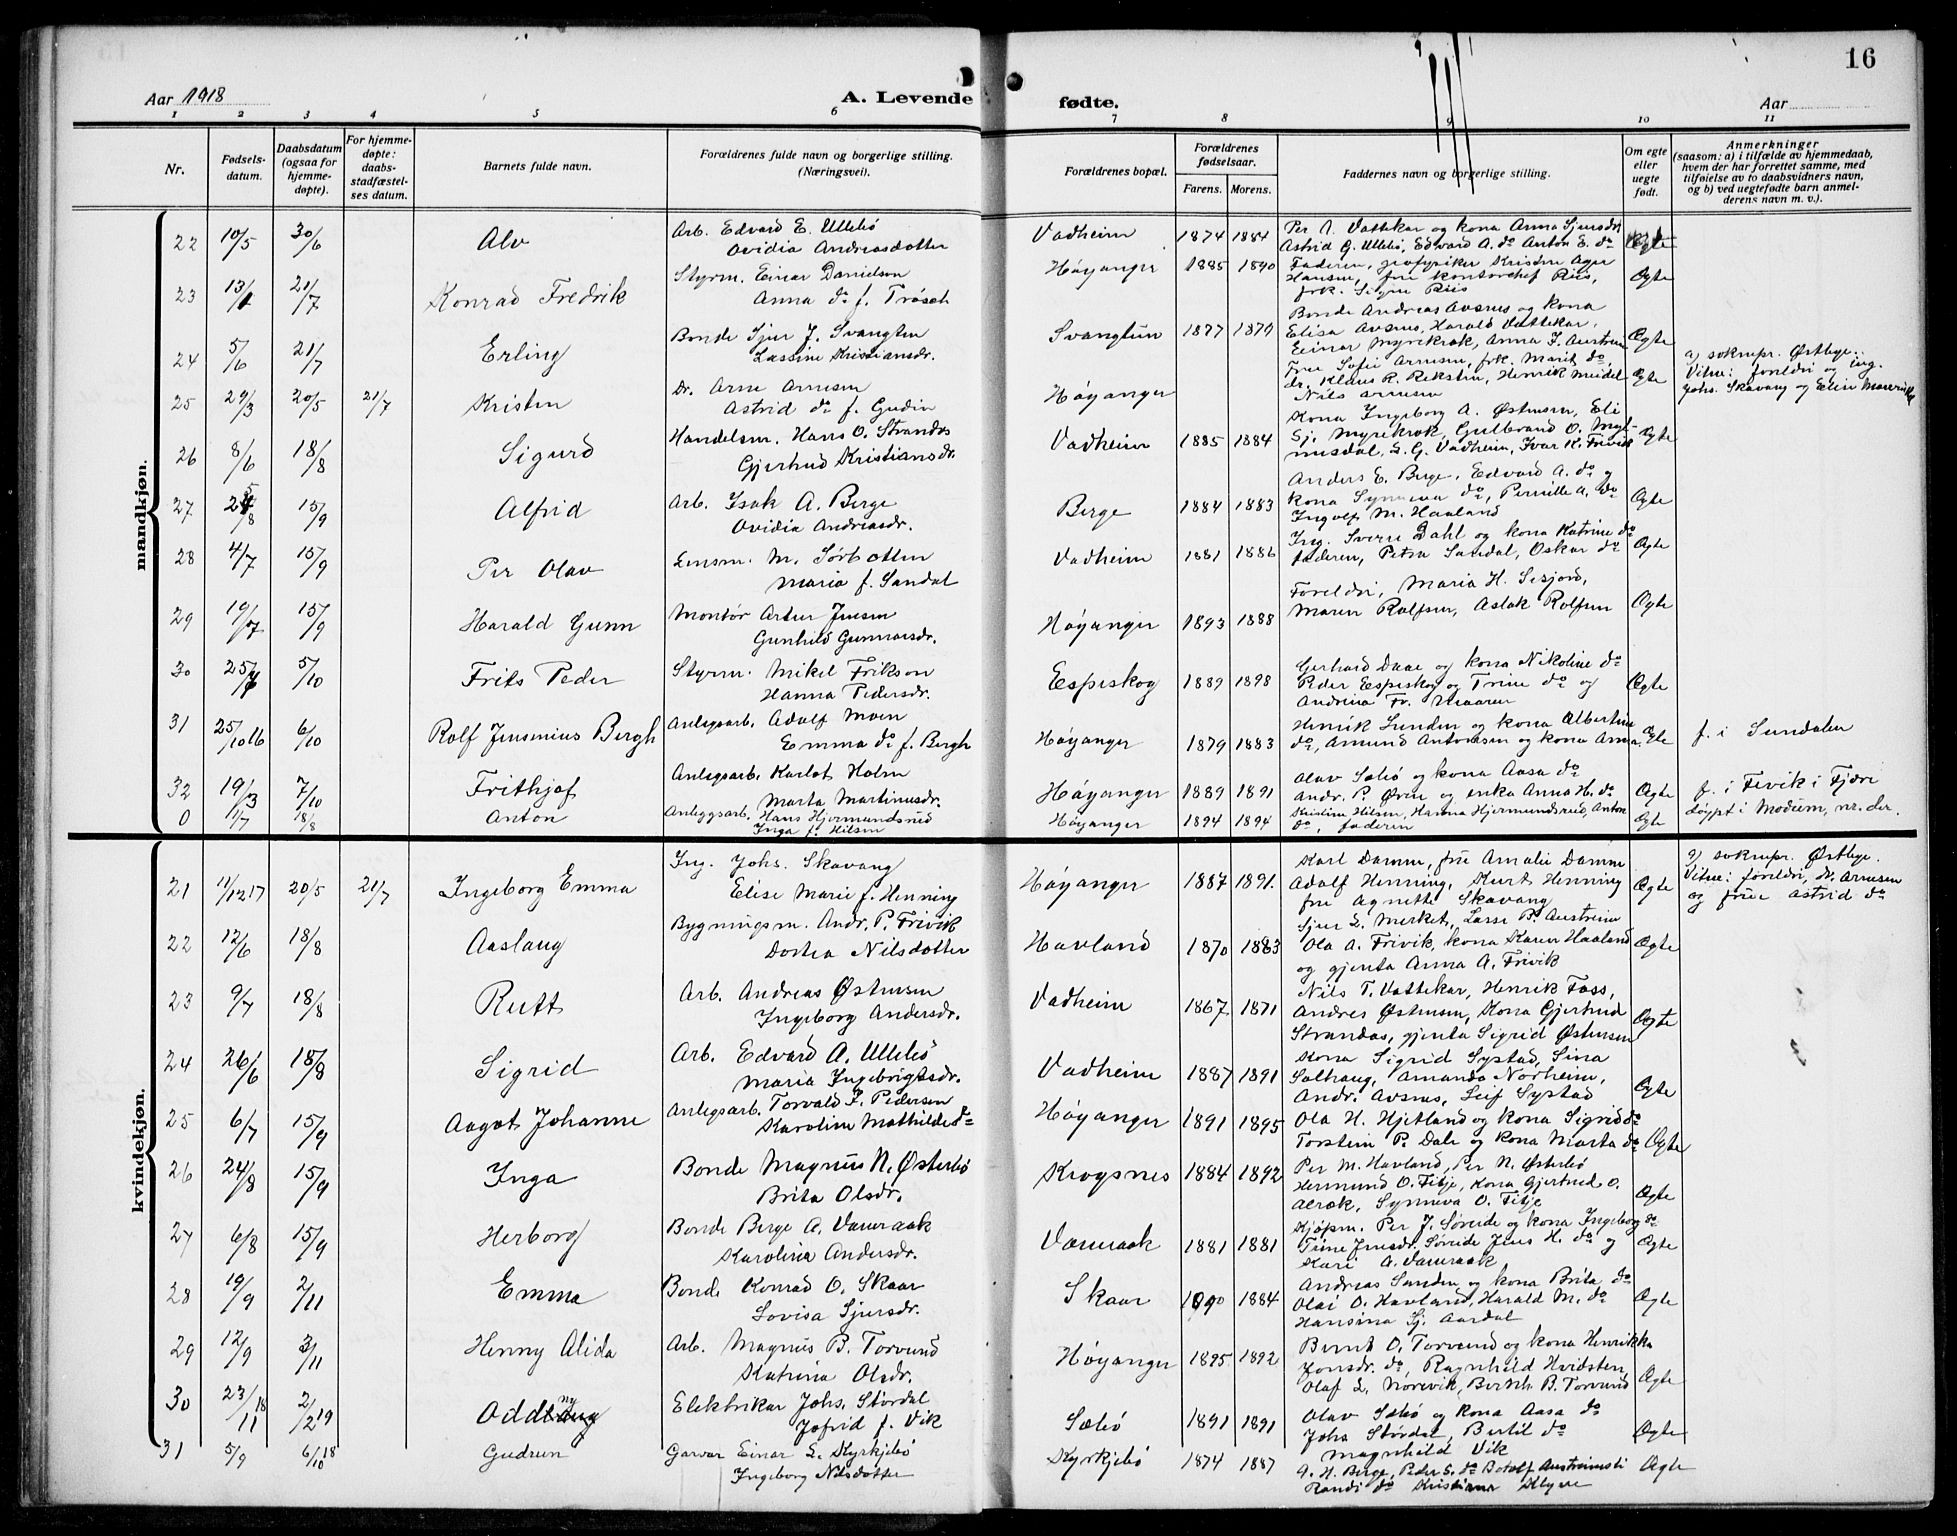 16
Aar 1918
A. Levende fødte.
Aar
1 2 3 4 5 6 7 8 9 10 11
Nr.
Fødsels-
datum.
Daabsdatum
(ogsaa for
hjemme-
døpte).
For hjemme-
døpte:
daabs-
stadfæstel-
ses datum.
Barnets fulde navn.
Forældrenes fulde navn og borgerlige stilling.
(Næringsvei).
Forældrenes bopæl.
Forældrenes
fødselsaar.
Farens. Morens.
Faddernes navn og borgerlige stilling.
Om egte
eller
uegte
født.
Anmerkninger
(saasom: a) i tilfælde av hjemmedaab,
hvem der har forrettet samme, med
tilføielse av to daabsvidners navn,
og b) ved uegtefødte barn anmel-
derens navn m. v.).
mandkjøn.
22 10/5 30/6 Alv Arb. Edvard E. Ullebø Vadheim 1874 1884 Per A. Vattekar og kona Anna Sjursdr Ægte
Ovidia Andreasdotter Astrid G. Ullebø, Edvard A. do Anton E. do
23 21/7 Konrad Fredrik Styrm. Einar Danielsen Høyanger 1885 1890 Faderen, geofysiker Kristen Ager Ægte
Anna do f. Trøsch Hansen, fru kontorchef Riis,
frk. Signe Riis
24 5/6 21/7 Erling Bonde Sjur J. Svangtun Svangtun 1877 1879 Bonde Andreas Avsnes og kona Ægte
Lassine Kristiansdr. Elisa Avsnes, Harald Vattekar,
Einar Myrekrok, Anna J. Austreim
25 29/3 20/5 21/7 Kristen Dr. Arne Arnesen Høyanger Frue Sofie Arnesen, frk. Marit do, Ægte a) soknepr. Østbye.
Astrid do f. Gudim dr. Klaus R. Rekstin, Henrik Meidel Vitne: foreldri og ing.
Nils Arnesen Johs. Skavang og Elise Marie
26 8/6 18/8 Sigurd Handelsm. Hans O. Strandos Vadheim 1885 1884 Kona Ingeborg A. Østensen, Eli Ægte
Gjertrud Kristiansdr. Sj. Myrekrok, Gulbrand O.
G. Vadheim, Ivar K. Frivik
27 15/9 Alfrid Arb. Isak A. Berge Berge 1884 1883 Anders E. Berge, Edvard A. do og Ægte
Ovidia Andreasdr. kona Synneva do, Pernille A. do
Ingolf M. Haaland
28 4/7 15/9 Per Olav M. Sørbotten Vadheim 1881 1886 Ing. Sverre Dahl og kona Katrine do Ægte
Maria f. Sandal faderen, Petra Sandal, Oskar do
29 19/7 15/9 Harald Gunn Montør Artur Jensen Høyanger 1893 1888 Foreldri, Maria H. Sesjord, Ægte
Gunhild Gunnarsdr. Maren Rolfsen, Aslak Rolfsen
30 5/10 Frits Peder Styrm. Mikel Erikson Espeskog 1889 1898 Gerhard Daae og kona Nikoline do Ægte
Hanna Pedersdr. Peder Espeskog og Trine do og
Andrina Fr. Maaren
31 25/10 16 6/10 Rolf Jensenius Bergh Anlegsarb. Adolf Moen Høyanger 1879 1883 Henrik Lunden og kona Albertine Ægte f. i Sundalen
Emma do f. Bergh do, Amund Antonsen og kona Anna
32 19/3 7/10 Frithjof Anlegsarb. Karlot Holm Høyanger 1889 1891 Olav Sæbø og kona Aasa do Ægte f. i Fevik i Fjære
Marta Martinusdr. Andr. P. Øren og enka Anna H. do
0 11/7 18/8 Anton Anleggsarb. Hans Hjermundsrud Høyanger 1894 1894 Kristine Hilsen, Hanna Hjermundsrud, Anton Ægte døypt i Modum, nr. der.
Inga f. Hilsen do, faderen
kvindekjøn.
21 11/12 17 20/5 21/7 Ingeborg Emma Ing. Johs. Skavang Høyanger 1887 1891. Karl Damm, frue Amalie Damm Ægte a) soknepr. Østbye.
Elise Marie f. Henning Adolf Henning, Kurt Henning Vitne: foreldri, Dr. Arnesen
fru Agnette Skavang og frue Astrid do
22 12/6 18/8 Aaslaug Bygningsm. Andr. P. Frivik Havland 1870 1883 Sjur L. Merket, Lasse B. Austreim Ægte
Dortea Nilsdotter Ola A. Frivik, kona Karen Haaland
og gjenta Anna A. Frivik
23 9/7 18/8 Rutt Arb. Andreas Østensen Vadheim 1867 1871 Nils T. Vattekar, Henrik Foss, Ægte
Ingeborg Andersdr. Andres Østensen, Kona Gjertrud
Strandos, gjenta Sigrid Østensen
24 26/6 18/8 Sigrid Arb. Edvard A. Ullebø Vadheim 1887 1891 Kona Sigrid Systad, Sina Ægte
Maria Ingeborigtsdr. Solhaug, Amanda Norheim,
Andr. Avsnes, Leif Systad
25 6/7 15/9 Aagot Johanne Anlegsarb. Torvald J. Pedersen Høyanger 1891 1895 Ola H. Hjetland og kona Sigrid do Ægte
Karoline Mathilde do Torstein P. Dale og kona Marta do
26 24/8 15/9 Inga Bonde Magnus N. Østerbø Krogsnes 1884 1892 Per M. Havland, Per N. Østerbø Ægte
Brita Olsdr. Hermund O. Fitje, kona Gjertrud O.
Synneva O. Fitje
27 6/8 15/9 Herborg Bonde Berge A. Væneraak Væneraak 1881 1881 Kjøpm. Per J. Søreide og kona Ingeborg do Ægte
Karolina Andersdr. Trine Jensdr. Søreide Jens H. do og
Kari A. Væneraak
28 19/9 2/11 Emma Bonde Konrad O. Skaar Skaar 1890 1884 Andreas Sanden og kona Brita do Ægte
Lovisa Sjursdr. Olai O. Havland, Harald M. do
Hansina Sj. Aardal
29 12/9 3/11 Henny Alida Arb. Magnus B. Torvund Høyanger 1895 1892 Bernt O. Torvund og kona Henrikka Ægte
Katrina Olsdr. Jonsdr. do Ragnhild Hvidsten
Olaf L. Nørevik, Bernh. B. Torvund
30 23/11 18 2/2 19 Oddny Elektrikar Johs. Størdal Sæbø 1891 1891 Olav Sæbø og kona Aasa do Ægte
Jofrid f. Vik Johs Størdal, Bertil do
Magnhild Vik
31 5/9 6/10 18 Gudrun Garvar Einar L. Kyrkjebø Kyrkjebø 1874 1887 A. H. Berge, Peder S. do Botolf Austreim Ægte
Ingeborg Nilsdotter Randi do Kristiana Klyve